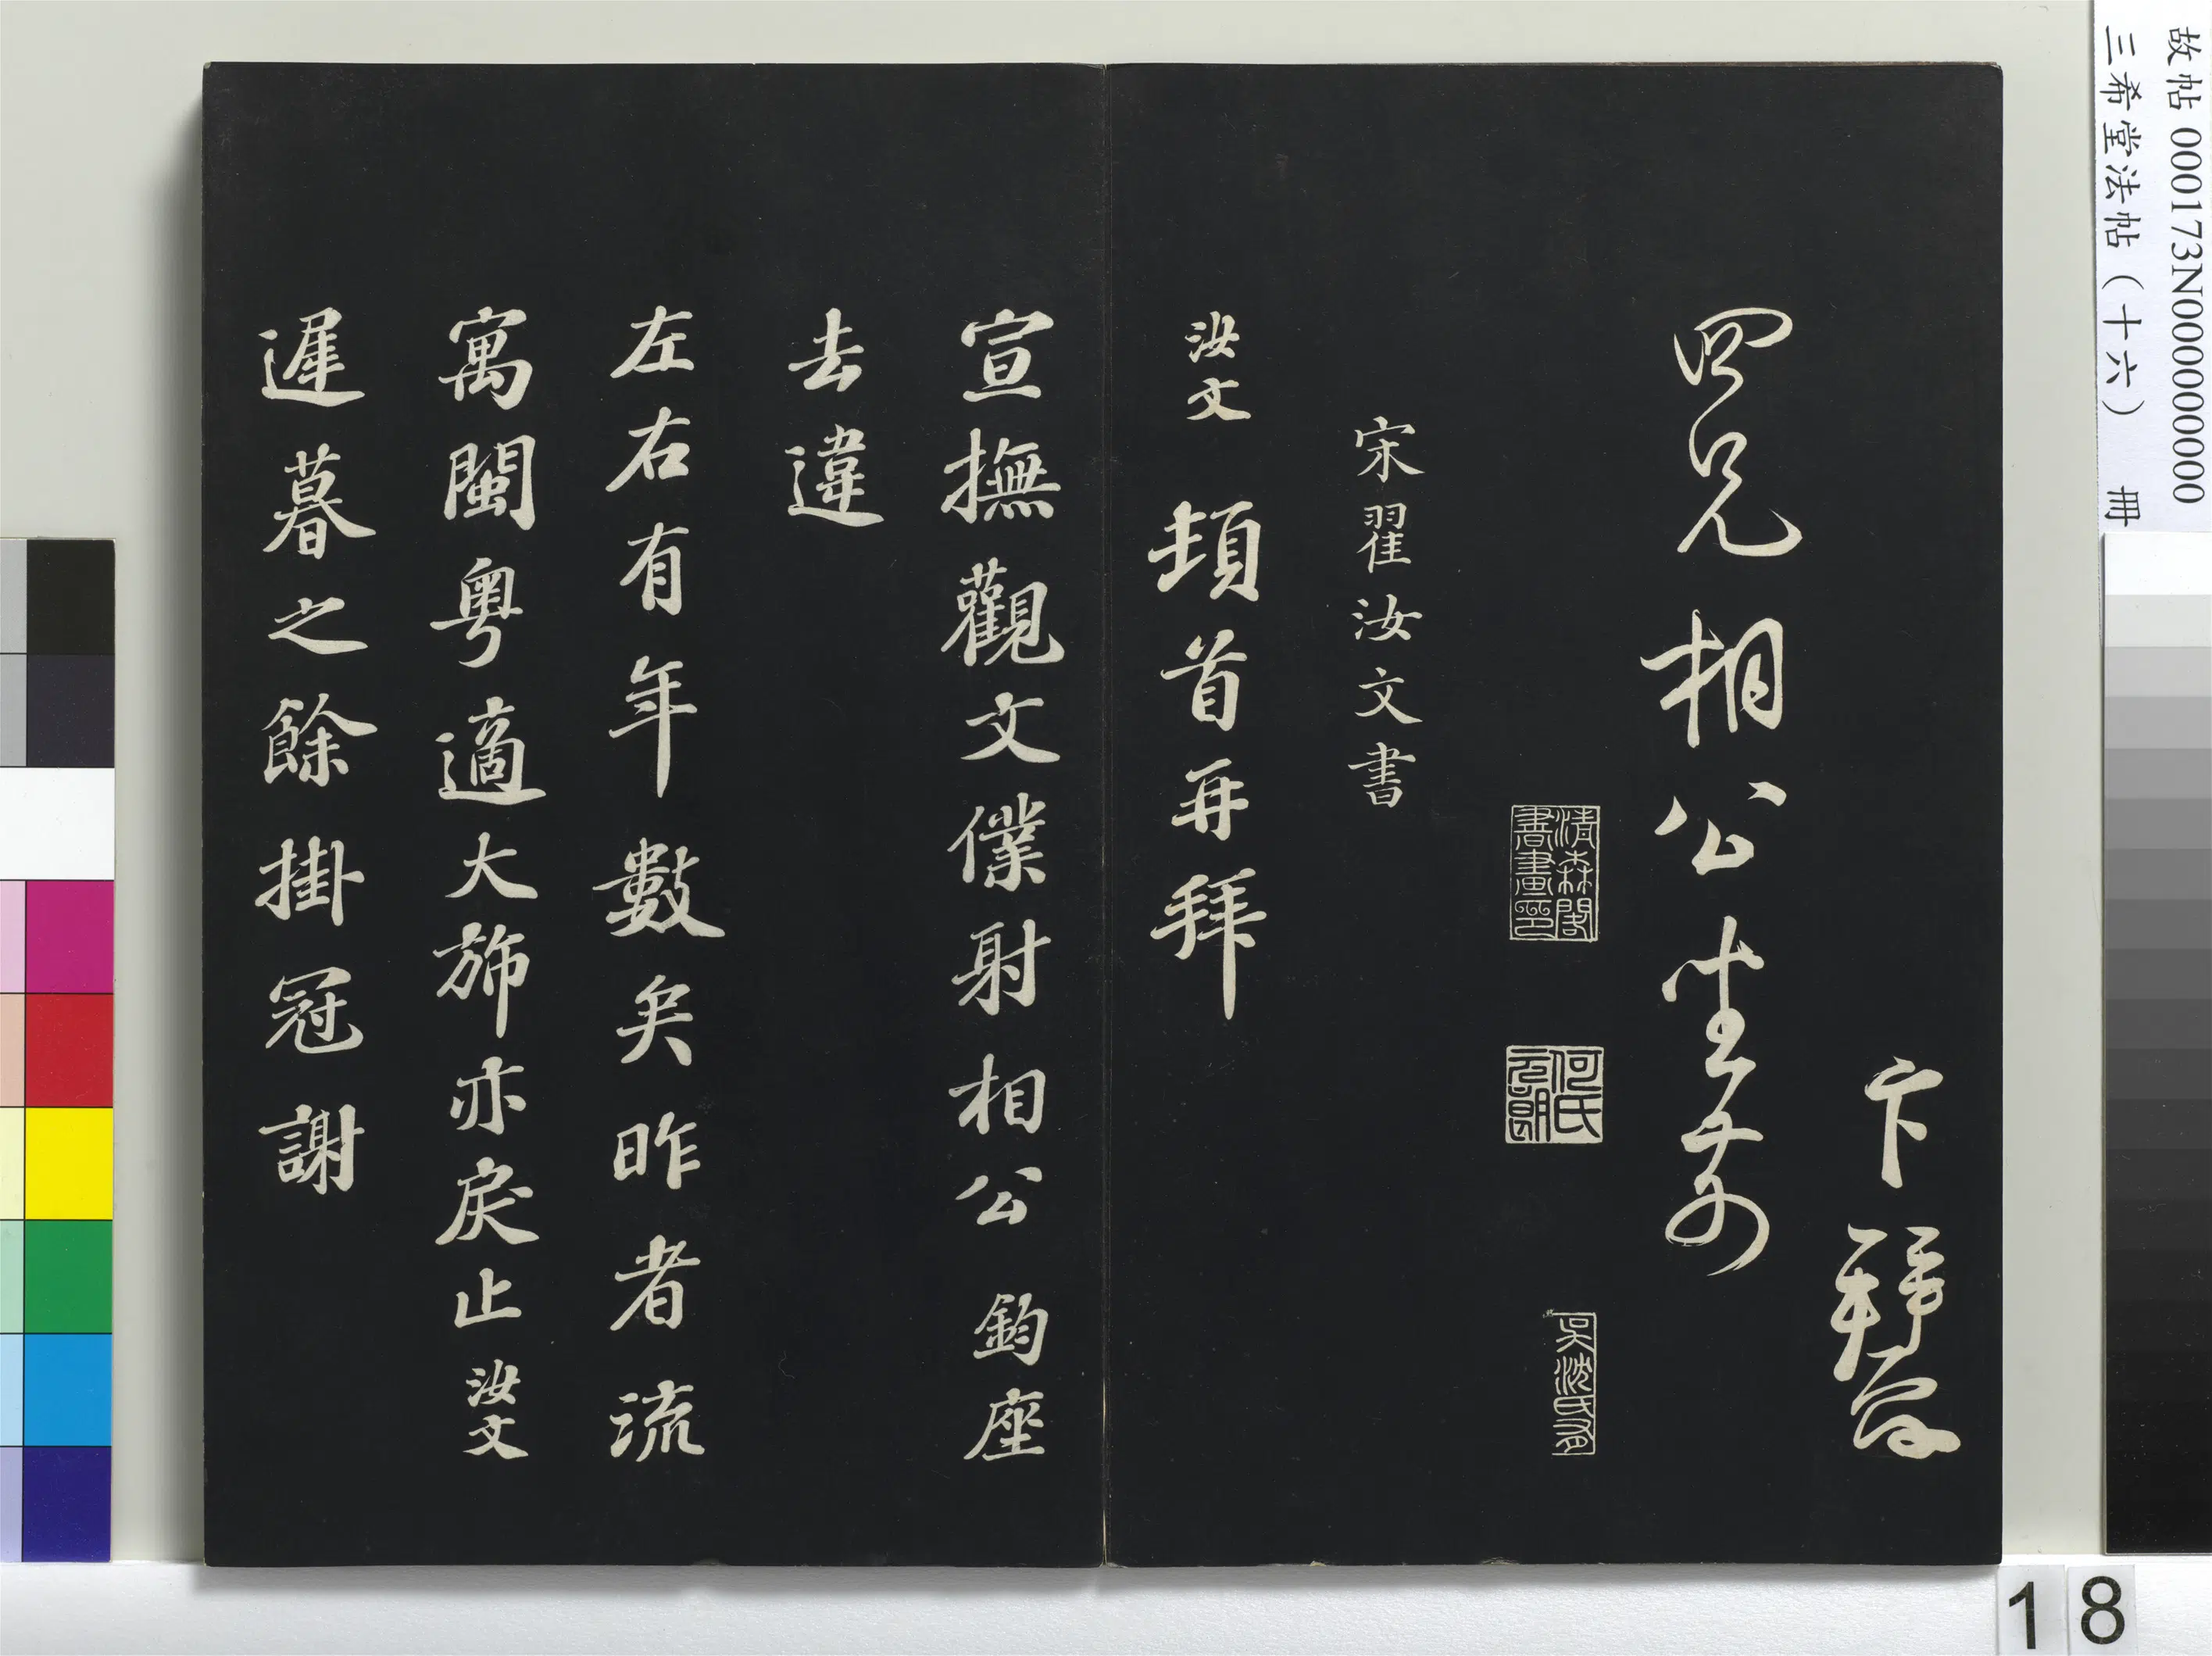 故帖 000173N000000000
三希堂法帖（十六） 冊
卞拜啓
四兄相公坐前
清森閣書畫印
何氏元朗
吳沈氏有
宋翟汝文書
汝文 頓首再拜
宣撫觀文僕射相公 鈞座
去違
左右有年數矣昨者流
寓閩粵適大斾亦戾止汝文
遲暮之餘掛冠謝
18